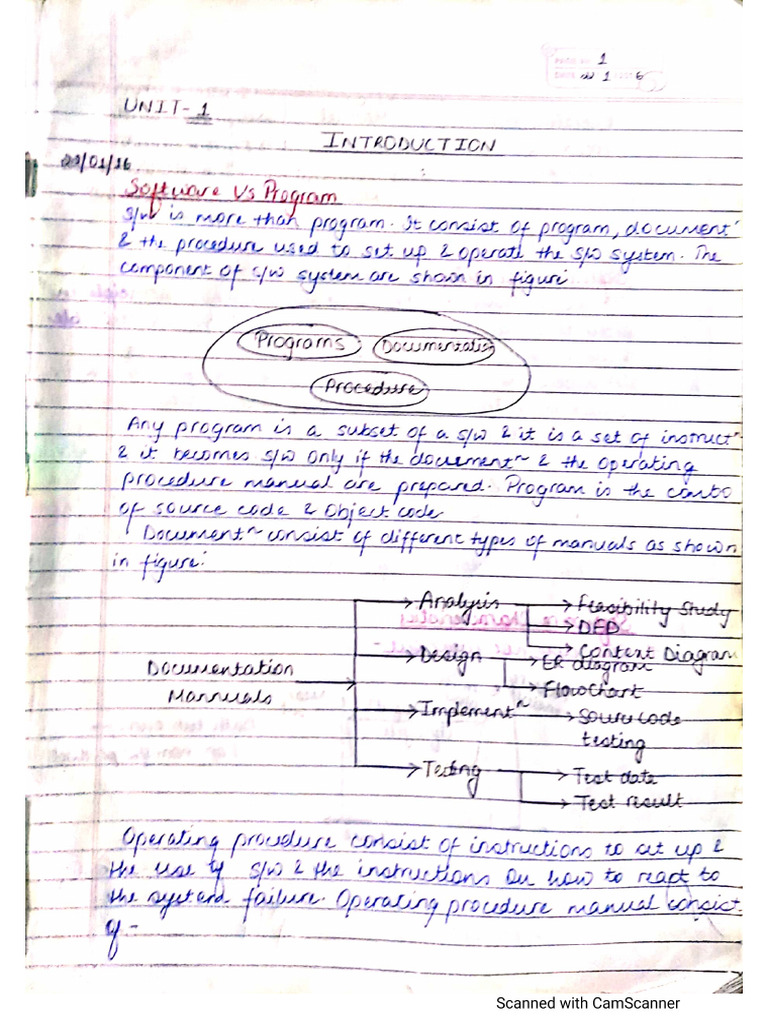 1
1 6
UNIT-1
INTRODUCTION
22/01/16
Software Vs Program
S/W is more than program. It consist of program, document~
& the procedure used to set up & operate the S/W system. The
component of S/W system are shown in figure
Programs Documentatio
Procedure
Any program is a subset of a S/W & it is a set of instruct~
& it becomes S/W only if the document~ & the operating
procedure manual are prepared. Program is the combo
of source code & Object code.
Document~ consist of different types of manuals as shown
in figure:
Analysis Feasibility Study
DFD
Context Diagram
Design ER diagram
Documentation
FlowChart
Mannuals
Implement~ Source code
testing
Testing Test date
Test result
Operating procedure consist of instructions to set up &
the use of S/W & the instructions on how to react to
the system failure. Operating procedure manual consist
of -
Scanned with CamScanner